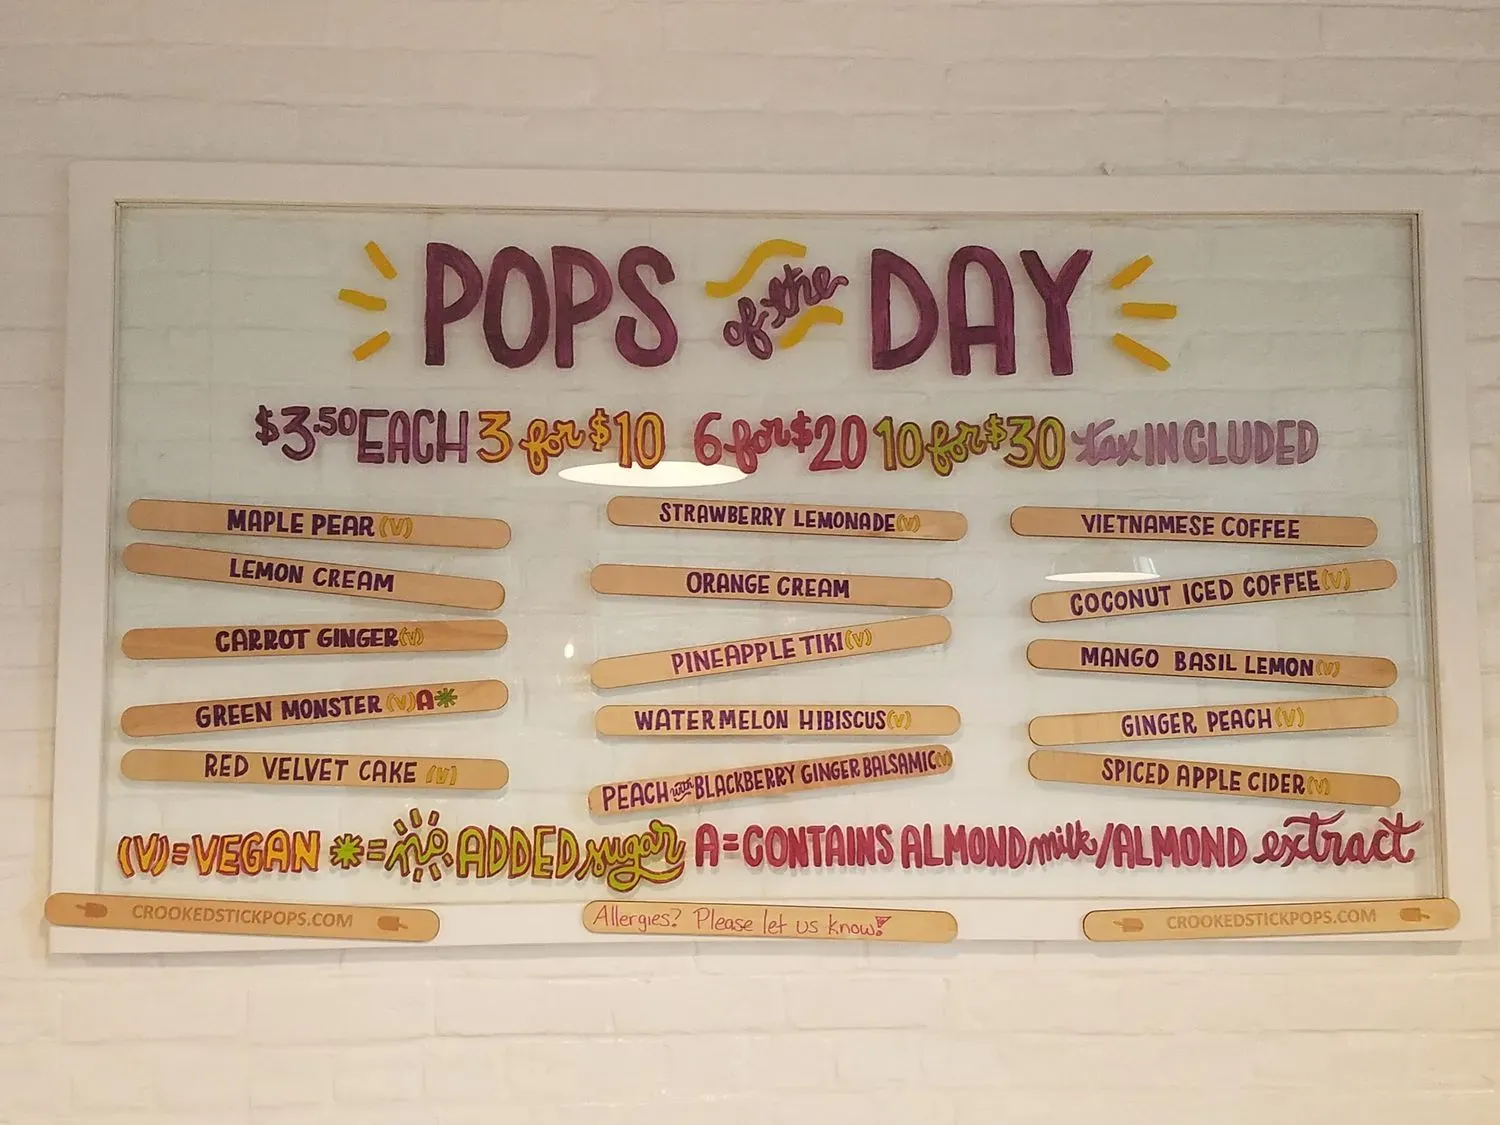 POPS of the DAY
$3.50 EACH 3 for $10 6 for $20 10 for $30 tax INCLUDED
MAPLE PEAR (V)
LEMON CREAM
CARROT GINGER (V)
GREEN MONSTER (V) A *
RED VELVET CAKE (V)
STRAWBERRY LEMONADE (V)
ORANGE CREAM
PINEAPPLE TIKI (V)
WATERMELON HIBISCUS (V)
PEACH with BLACKBERRY GINGER BALSAMIC (V)
VIETNAMESE COFFEE
COCONUT ICED COFFEE (V)
MANGO BASIL LEMON (V)
GINGER PEACH (V)
SPICED APPLE CIDER (V)
(V)=VEGAN *=no ADDED sugar A=CONTAINS ALMOND milk/ALMOND extract
CROOKEDSTICKPOPS.COM
Allergies? Please let us know!
CROOKEDSTICKPOPS.COM